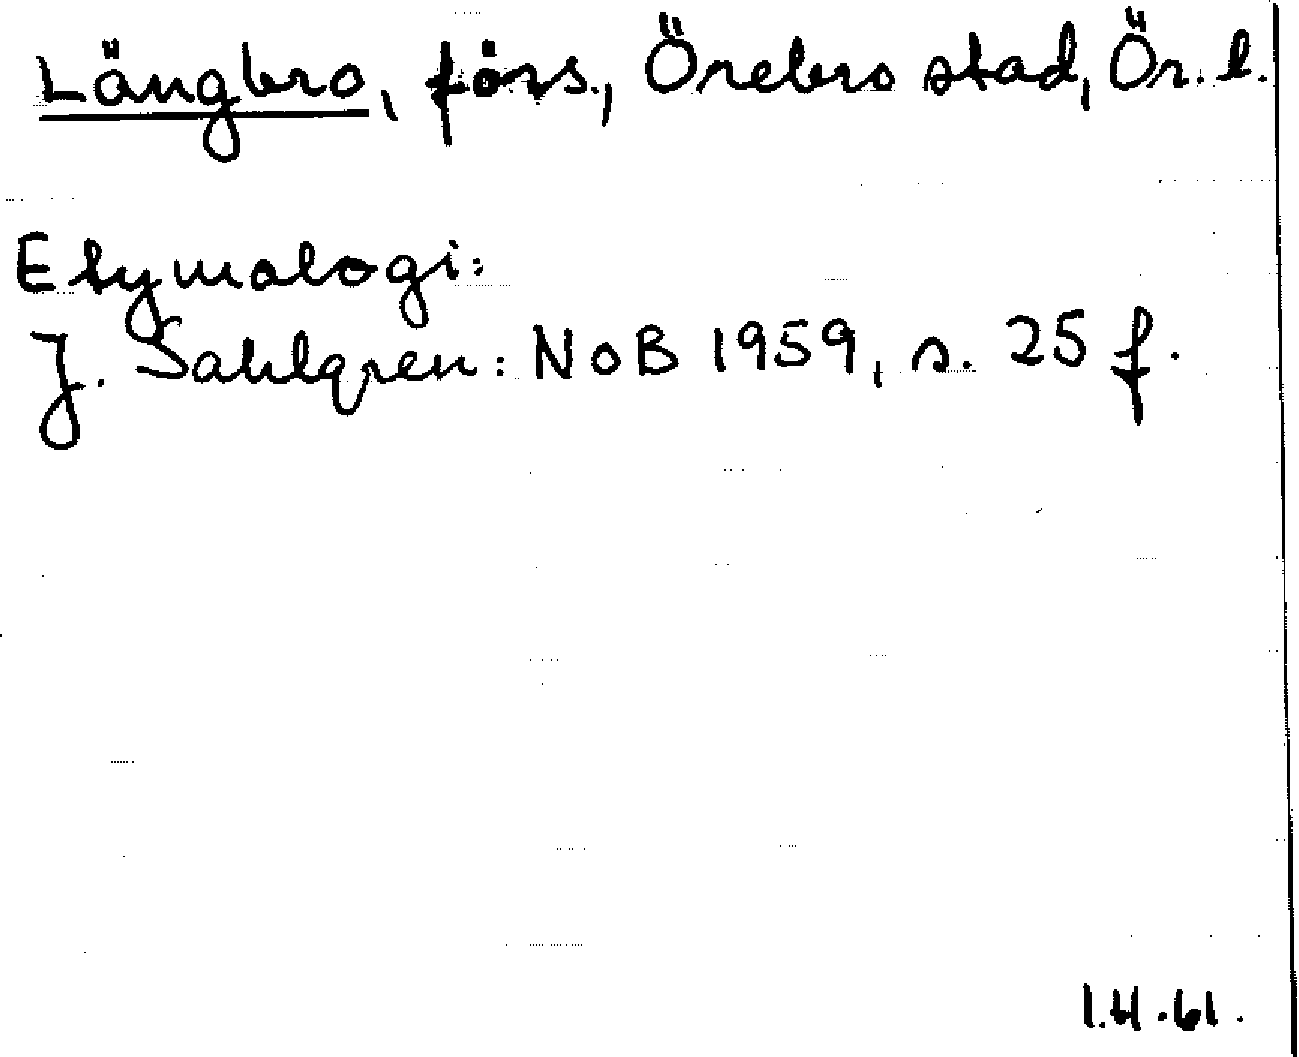 Längbro, förs., Örebro stad, Ör. l.
Etymologi:
J. Sahlgren: NoB 1959, s. 25 f.
1.4.61.